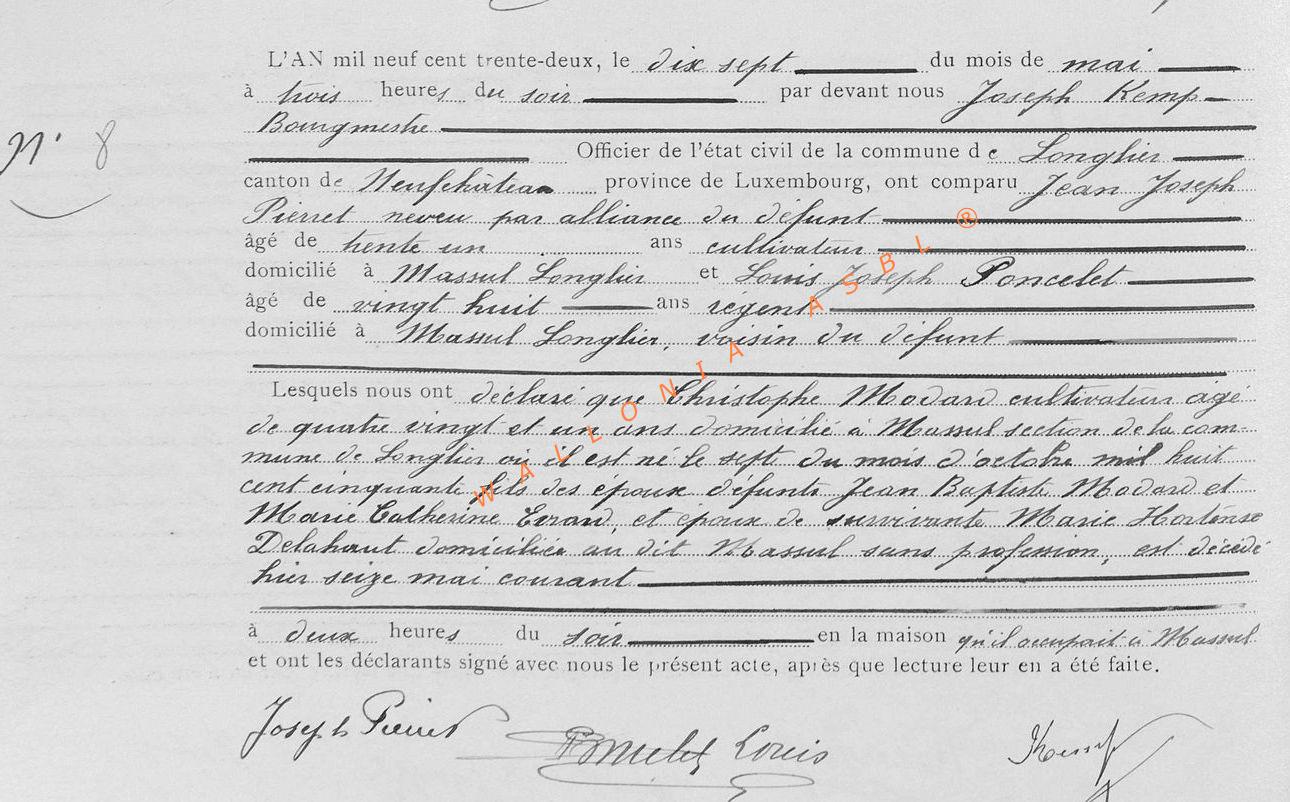 L'AN mil neuf cent trente-deux, le dix sept du mois de mai
à trois heures du soir par devant nous Joseph Kemp
Bourgmestre
N° 8
Officier de l'état civil de la commune de Longlier
canton de Neufchâteau province de Luxembourg, ont comparu Jean Joseph
Pierret neveu par alliance du défunt
âgé de trente un ans cultivateur
domicilié à Massul Longlier et Louis Joseph Poncelet
âgé de vingt huit ans régent
domicilié à Massul Longlier, voisin du défunt
Lesquels nous ont déclaré que Christophe Modard cultivateur âgé
de quatre vingt et un ans domicilié à Massul section de la com-
mune de Longlier où il est né le sept du mois d'octobre mil huit
cent cinquante fils des époux défunts Jean Baptiste Modard et
Marie Catherine Evrard, et époux de survivante Marie Hortense
Delahaut domiciliée au dit Massul sans profession, est décédé
hier seize mai courant
à deux heures du soir en la maison qu'il occupait à Massul
et ont les déclarants signé avec nous le présent acte, après que lecture leur en a été faite.
Joseph Pierret Poncelet Louis JKemp
WALLONIA ASBL ®